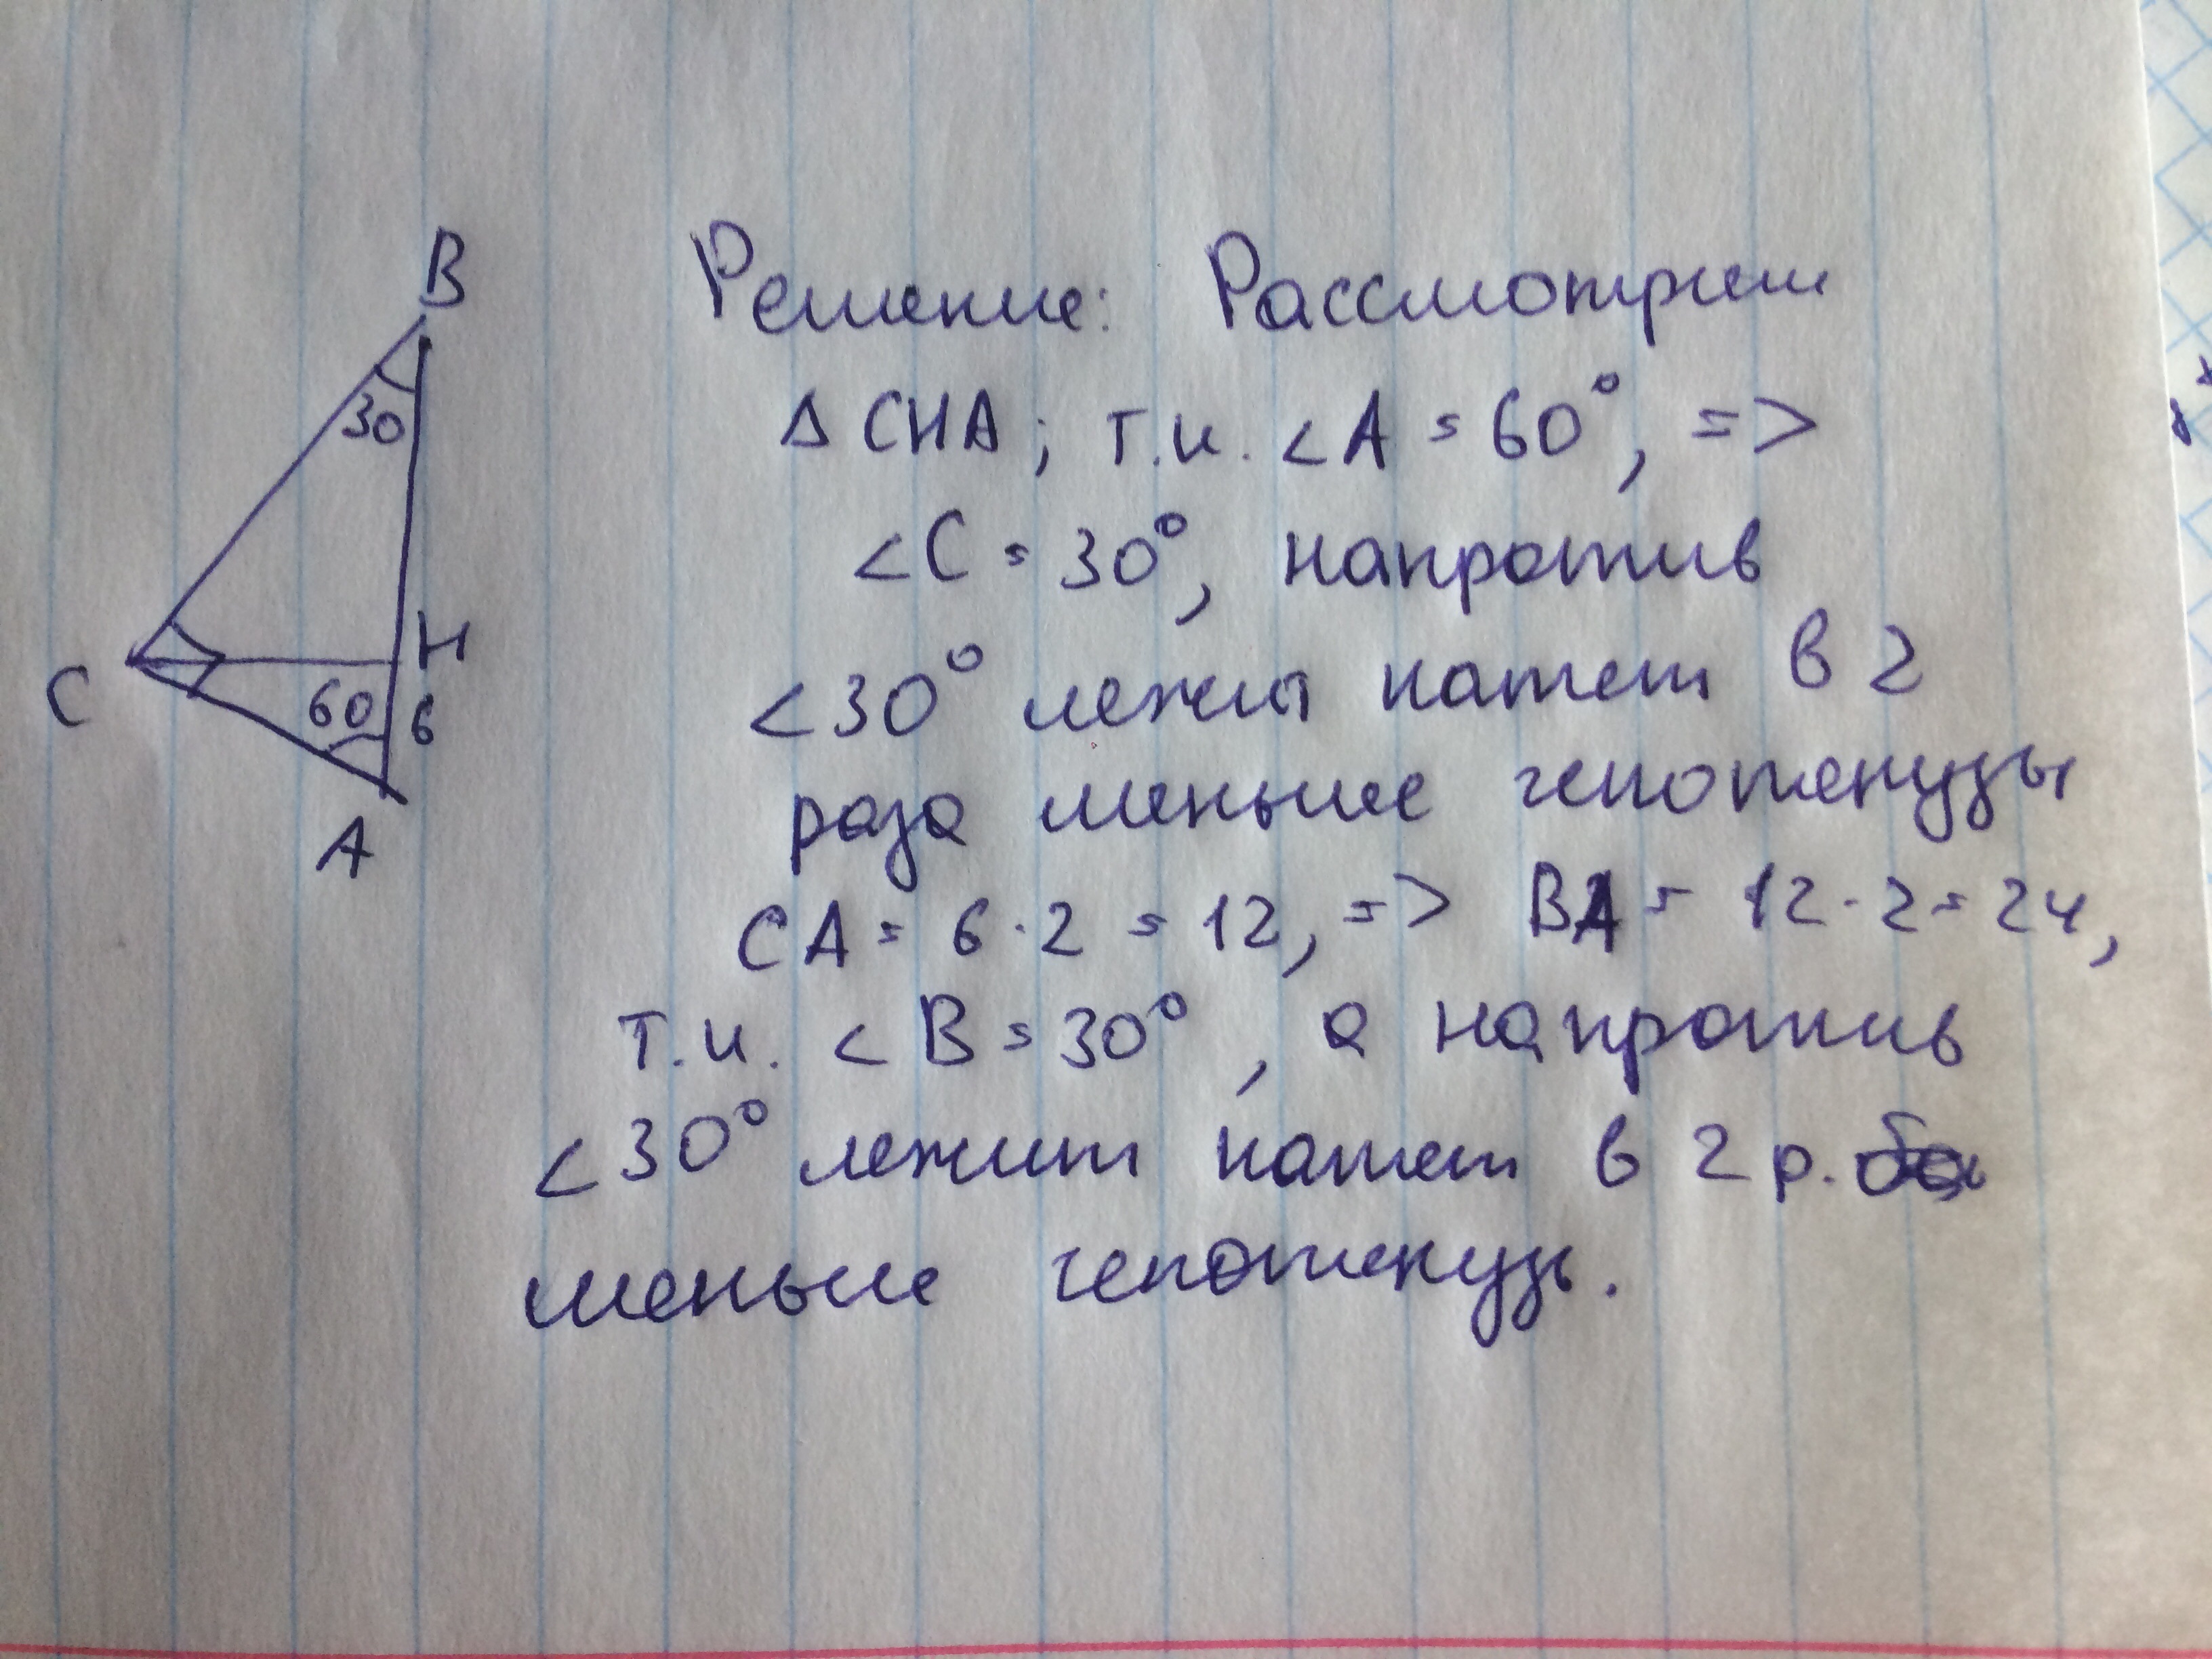 B
30
C
H
60 6
A
Решение: Рассмотрим
Δ CHA; т.к. <A = 60°, =>
<C = 30°, напротив
<30° лежит катет в 2
раза меньше гепотенузы
CA = 6·2 = 12, => BA = 12·2 = 24,
т.к. <B = 30°, а напротив
<30° лежит катет в 2 р.
меньше гепотенузы.